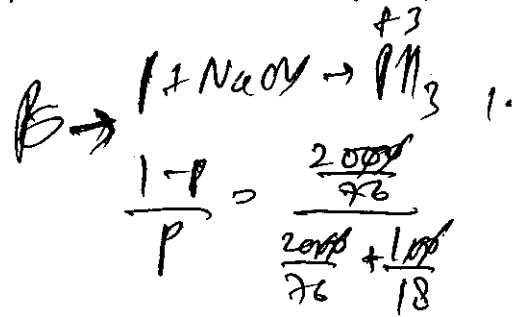 +3
P + NaOH → PH3 1.
P5 →
1-P / P = (2000/76) / (2000/76 + 100/18)